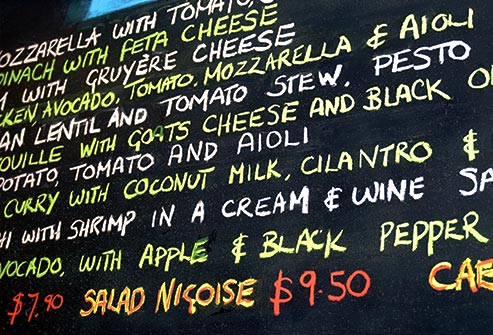 MOZZARELLA WITH TOMATO,
SPINACH WITH FETA CHEESE
WITH GRUYÈRE CHEESE
CHICKEN AVOCADO, TOMATO, MOZZARELLA & AIOLI
LENTIL AND TOMATO STEW. PESTO
WITH GOATS CHEESE AND BLACK
POTATO, TOMATO AND AIOLI
CURRY WITH COCONUT MILK, CILANTRO &
WITH SHRIMP IN A CREAM & WINE SA
AVOCADO, WITH APPLE & BLACK PEPPER
$7.90 SALAD NIÇOISE $9.50 CAE